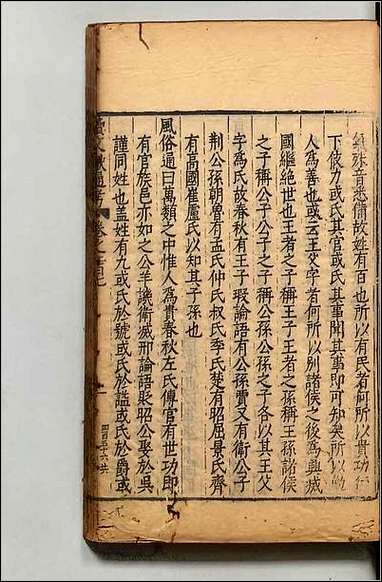 殊音悉備故姓有百也所以有氏者何所以貴功德
下伎力或氏其官或氏其事聞其氏即可知矣所以勉
人為善也或云王父字者何所以別諸侯之後為興滅
國繼絕世也王者之子稱王子王者之孫稱王孫諸侯
之子稱公子公子之子稱公孫公孫之子各以其王父
字為氏故春秋有王子瑕論語有公孫賈又有衛公子
荆公孫朝魯有孟氏仲氏叔氏季氏楚有昭屈景氏齊
有高國崔盧氏以知其子孫也
風俗通曰萬類之中惟人為貴春秋左氏傳官有世功即
有官族邑亦如之公羊譏衛滅邢論語貶昭公娶於吳
諱同姓也盖姓有九或氏於號或氏於謚或氏於爵或
通考 卷之
四百五十六共